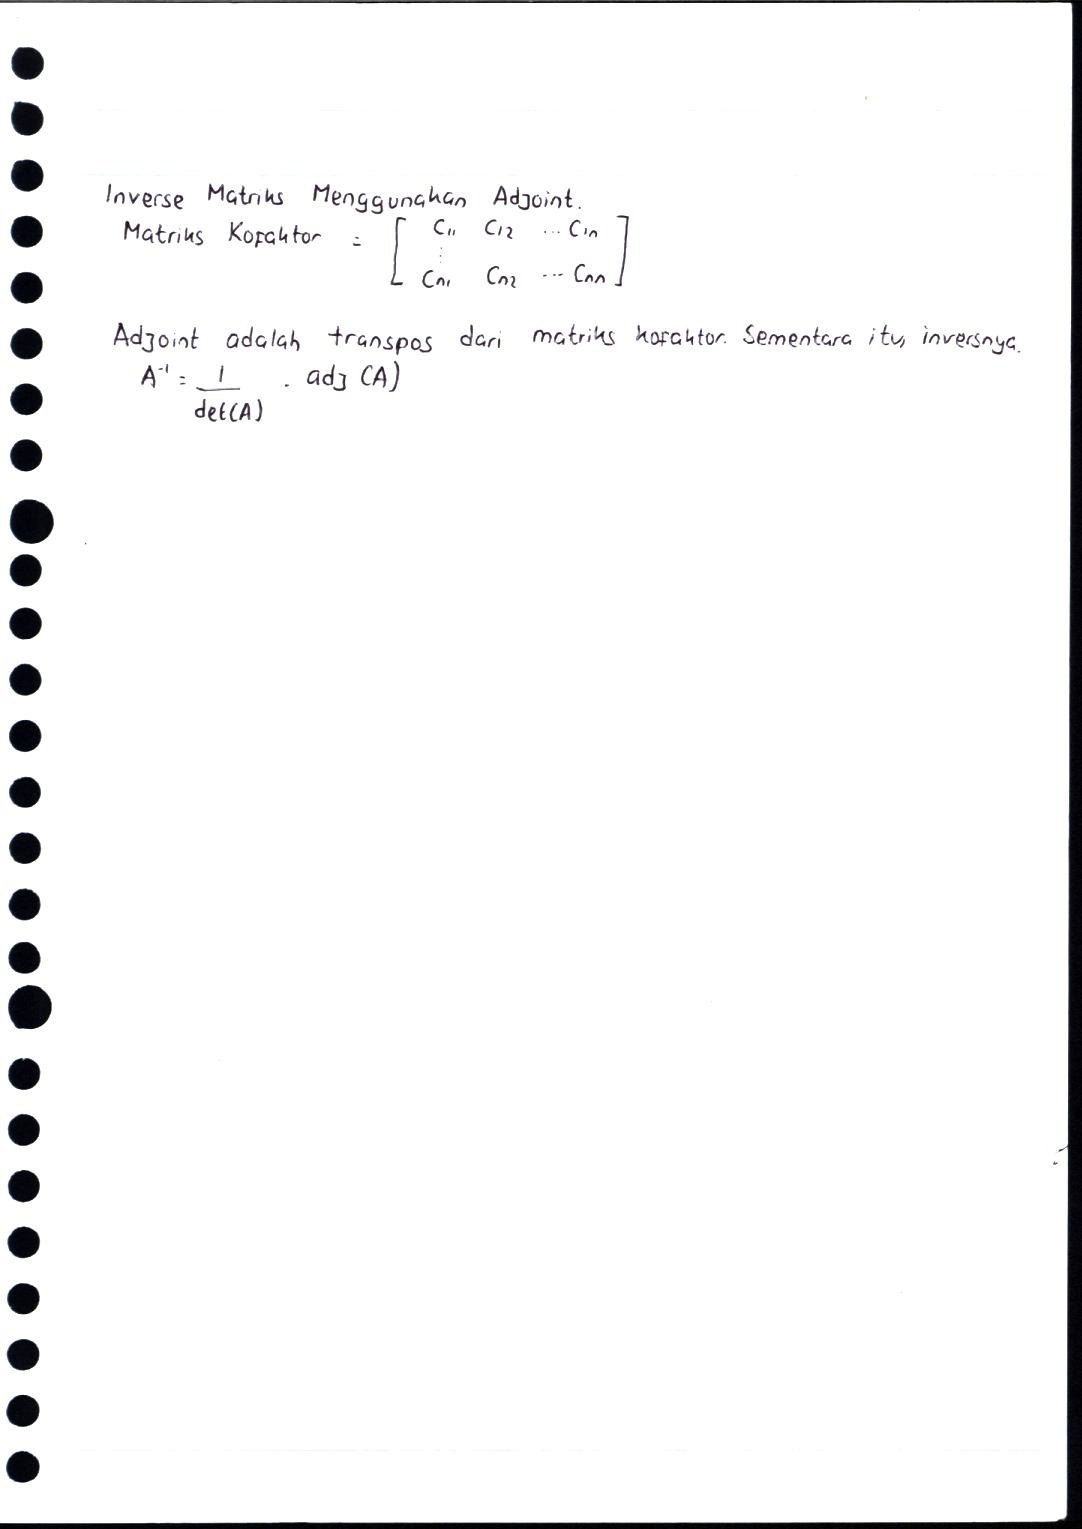 Inverse Matriks Menggunakan Adjoint.
Matriks Kofaktor = [ C₁₁ C₁₂ ... C₁ₙ
⋮
Cₙ₁ Cₙ₂ ... Cₙₙ ]
Adjoint adalah transpos dari matriks kofaktor. Sementara itu, inversnya.
A⁻¹ = 1 / det(A) . adj (A)